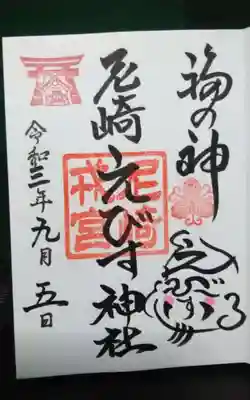 福の神
尼崎えびす神社
尼崎戎宮
令和三年九月五日